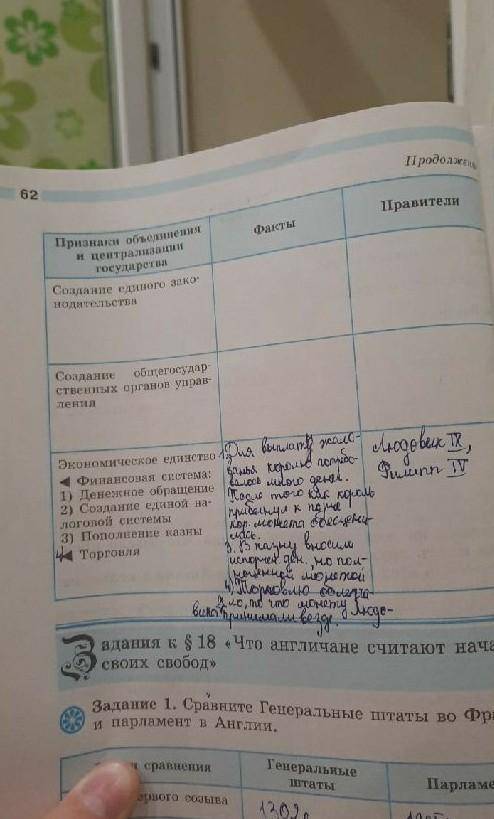 62
Продолжение
Признаки объединения
и централизации
государства
Факты
Правители
Создание единого зако-
нодательства
Создание общегосудар-
ственных органов управ-
ления
Экономическое единство
◄ Финансовая система:
1) Денежное обращение
2) Создание единой на-
логовой системы
3) Пополнение казны
4 ◄ Торговля
1. Для выплаты жало-
ванья королю потребо-
валось много денег.
После того как король
к порче
кор. монета обесцени-
лась.
3. В казну вносили
ден. но пол-
ноценной монетой
4. Торговлю
то, что монету Людо-
вика принимали везде.
Людовик IX,
Филипп IV
Задания к § 18 «Что англичане считают нача
своих свобод»
Задание 1. Сравните Генеральные штаты во Фра
и парламент в Англии.
сравнения
Генеральные
штаты
Парламе
первого созыва
1302